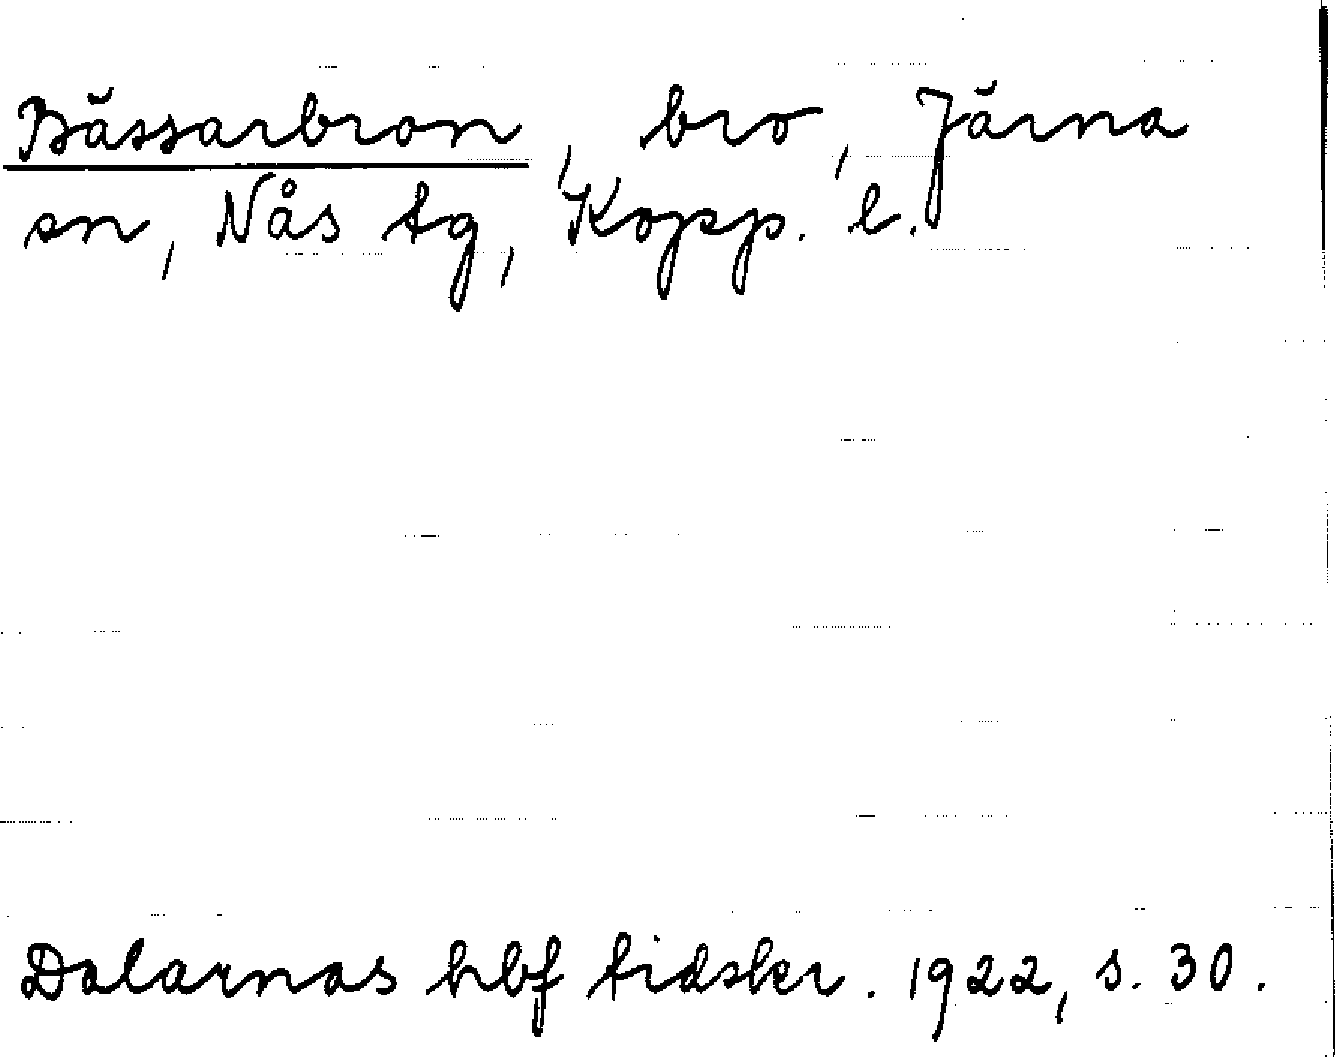 Bässarbron, bro, Järna
sn, Nås tg, Kopp. l.
Dalarnas hbf tidskr. 1922, s. 30.